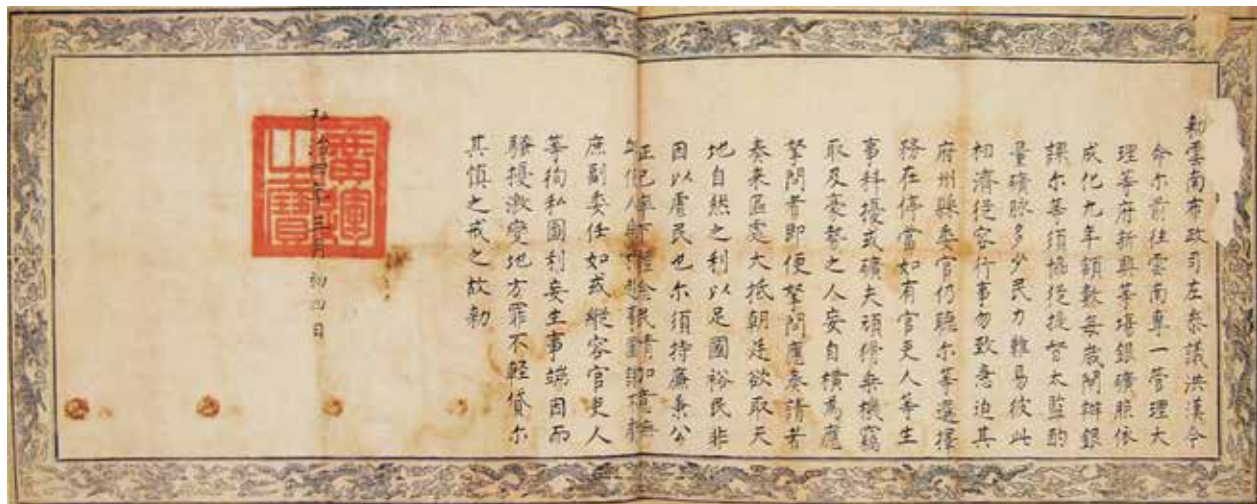 勅雲南布政司左叅議洪漢今
命尓前往雲南專一管理大
理等府新興等塲銀礦照依
成化九年額數每歲閘辦銀
課尓等須恊從提督太監酌
量礦脉多少民力難易彼此
相濟從容行事勿致急迫其
府州縣委官仍聽尓等選擇
務在停當如有官吏人等生
事科擾或礦夫頑猾無機竊
取及豪勢之人妄自橫為應
拏問者即便拏問應奏請者
奏来區處大抵朝廷欲取天
地自然之利以足國裕民非
因以虐民也尓須持廉秉公
正己率下體念民情加意撫
庶副委任如或縱容官吏人
等徇私圖利妄生事端因而
騷擾激變地方罪不輕貸尓
其慎之戒之故勅
弘治四年三月初四日
廣運之寶